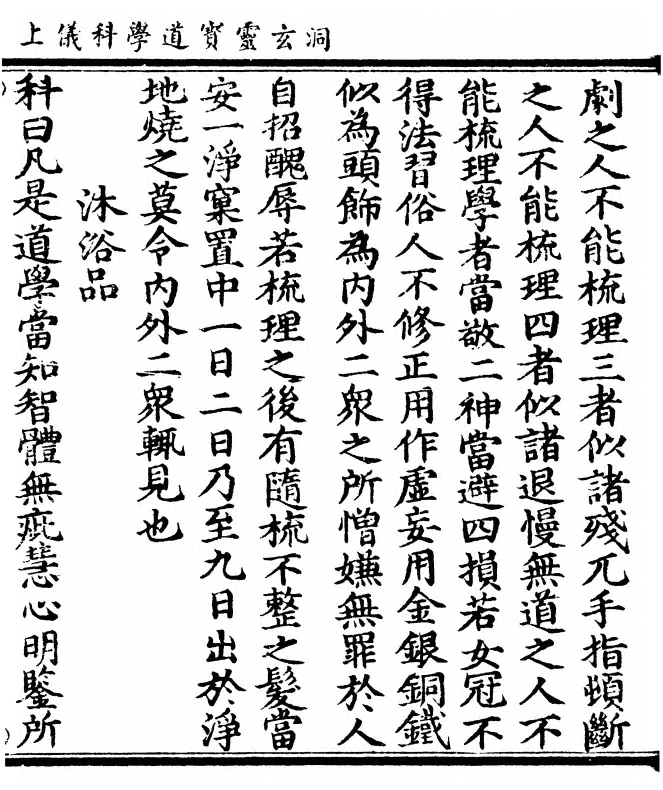 洞玄靈寳道學科儀上
劇之人不能梳理三者似諸殘兀手指頓斷
之人不能梳理四者似諸退慢無道之人不
能梳理學者當敬二神當避四損若女冠不
得法習俗人不修正用作虛妄用金銀銅鐵
似為頭飾為內外二衆之所憎嫌無罪於人
自招醜辱若梳理之後有隨梳不整之髮當
安一淨窠置中一日二日乃至九日出於淨
地燒之莫令內外二衆輒見也
沐浴品
科曰凡是道學當知智體無疵慧心明鑒所